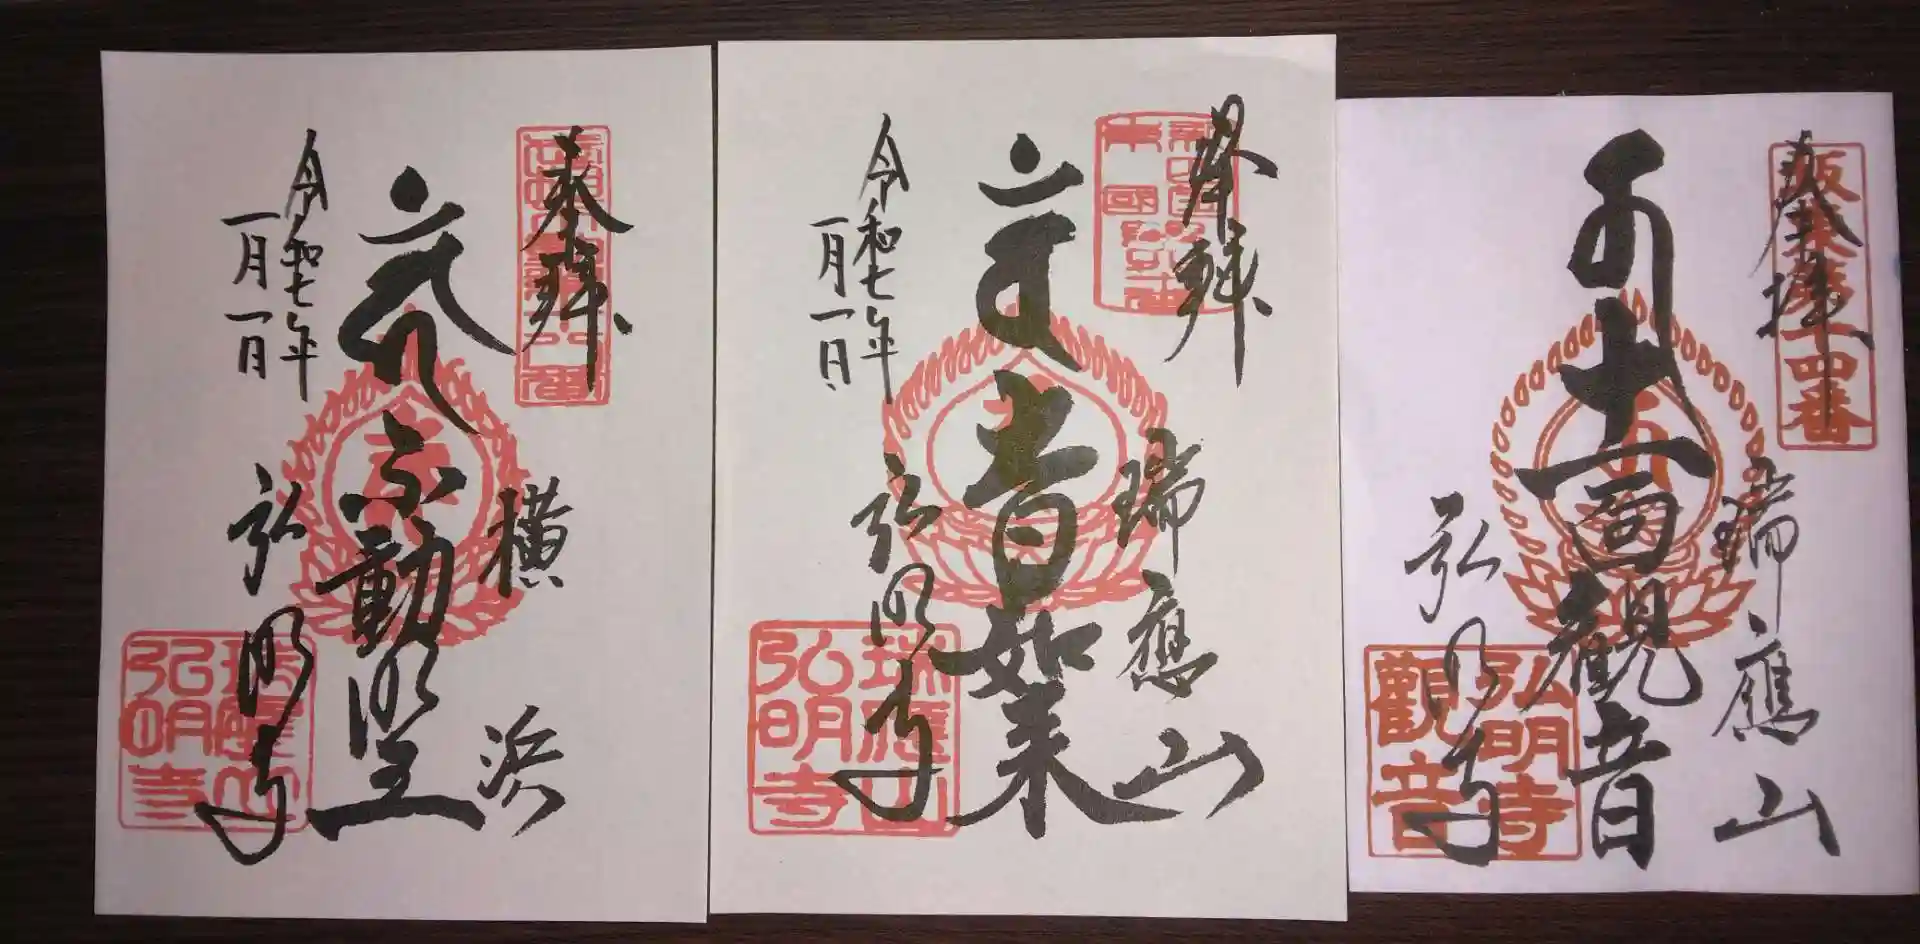 奉拝
横浜
不動明王
弘明寺
令和七年
一月一日
瑞應山
弘明寺
奉拝
瑞應山
大日如来
弘明寺
令和七年
一月一日
瑞應山
弘明寺
奉拝
坂東第十四番
瑞應山
十一面観音
弘明寺
弘明寺
觀音